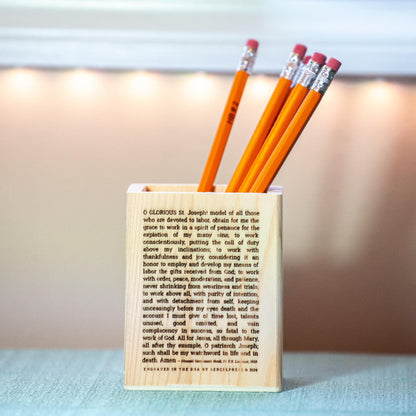 HB # 2
O GLORIOUS St. Joseph! model of all those
who are devoted to labor, obtain for me the
grace to work in a spirit of penance for the
expiation of my many sins; to work
conscientiously, putting the call of duty
above my inclinations; to work with
thankfulness and joy, considering it an
honor to employ and develop by means of
labor the gifts received from God; to work
with order, peace, moderation, and patience,
never shrinking from weariness and trials;
to work above all, with purity of intention,
and with detachment from self, keeping
unceasingly before my eyes death and the
account I must give of time lost, talents
unused, good omitted, and vain
complacency in success, so fatal to the
work of God. All for Jesus, all through Mary,
all after thy example, O patriarch Joseph,
such shall be my watchword in life and in
death. Amen
ENGRAVED IN THE USA BY